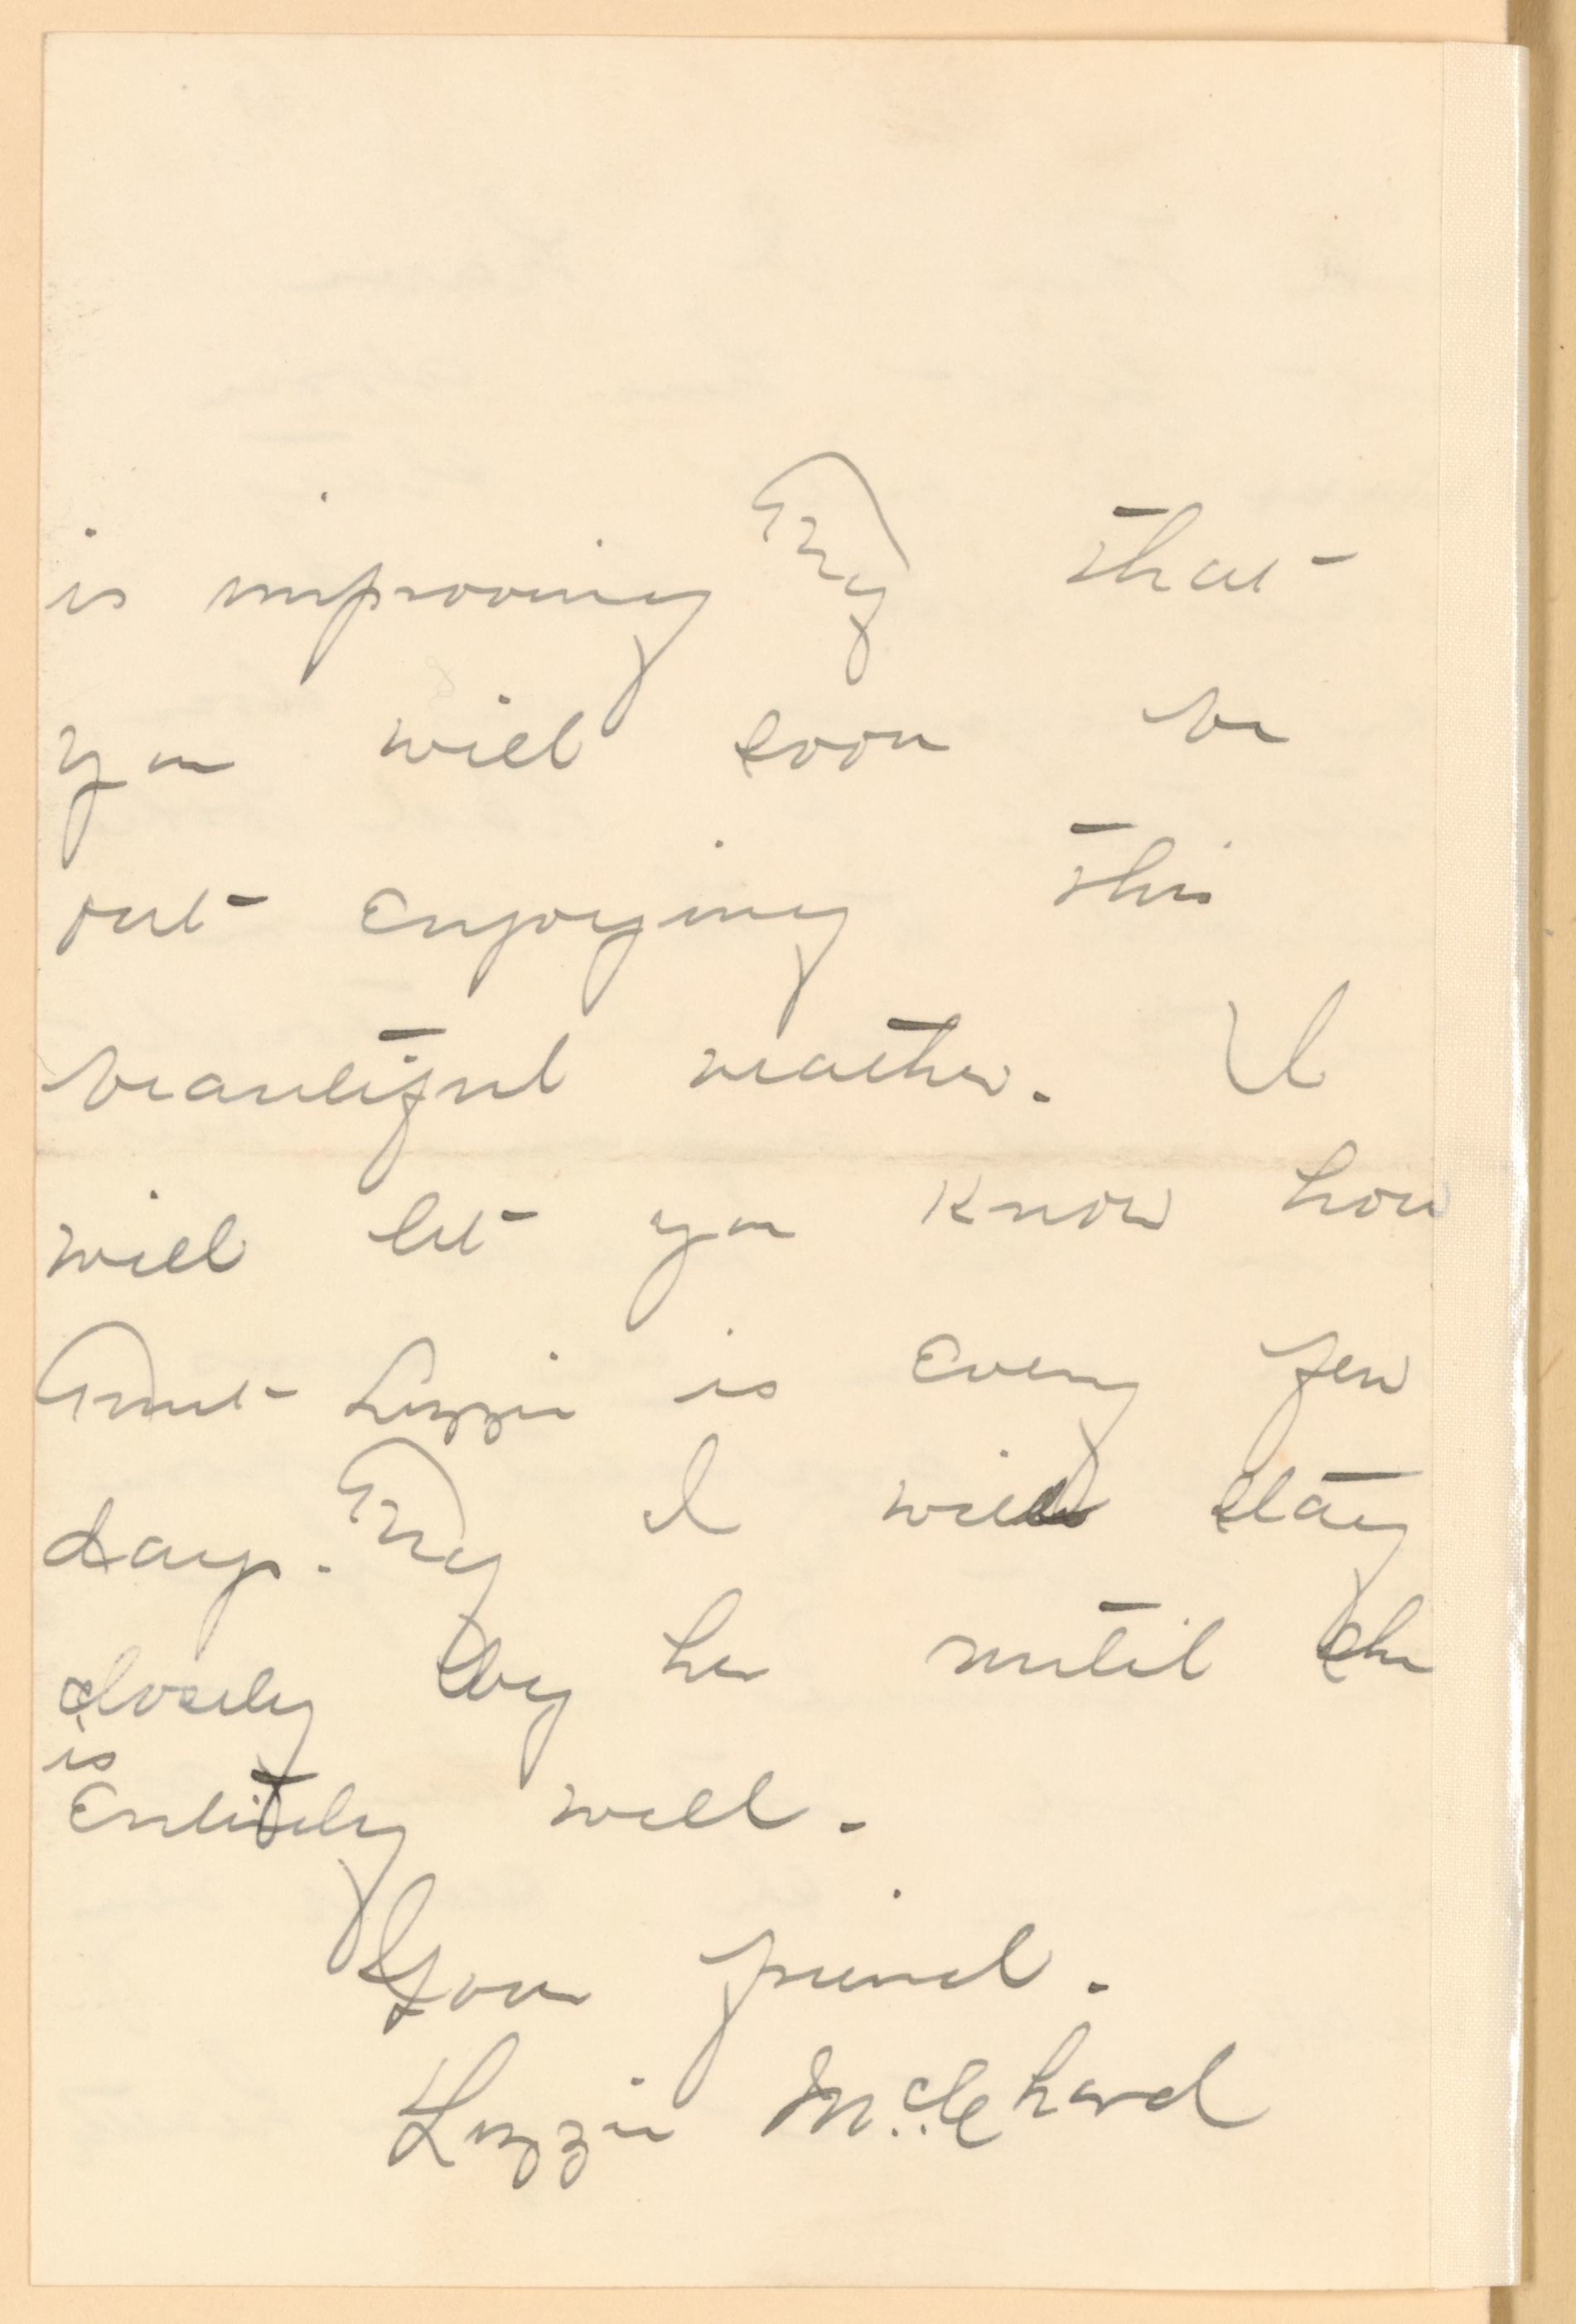 is improving that
you will soon be
out enjoying this
beautiful weather. I
will let you know how
Aunt Lizzie is every few
days. I will stay
closely by her until she
is
Entirely well.
Your friend.
Lizzie